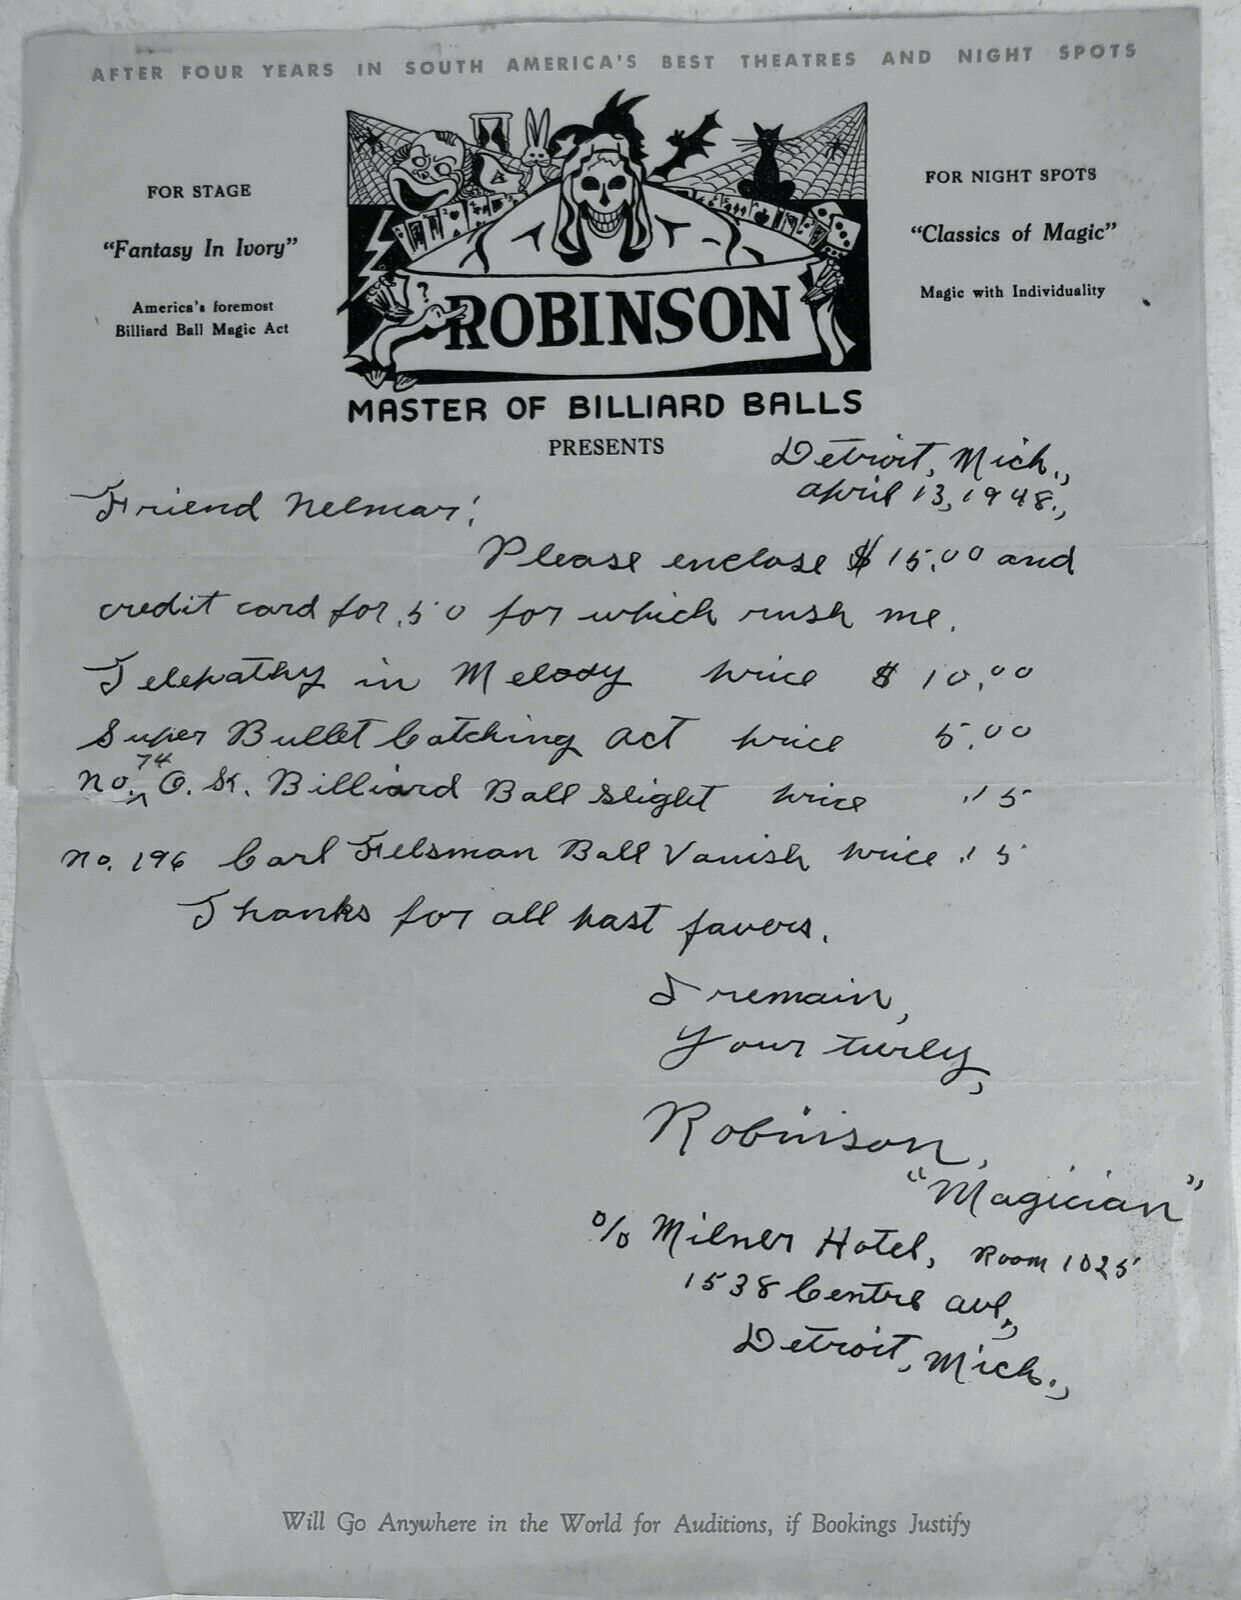 AFTER FOUR YEARS IN SOUTH AMERICA'S BEST THEATRES AND NIGHT SPOTS
FOR STAGE
"Fantasy In Ivory"
America's foremost
Billiard Ball Magic Act
?
ROBINSON
MASTER OF BILLIARD BALLS
PRESENTS
FOR NIGHT SPOTS
"Classics of Magic"
Magic with Individuality
Detroit, Mich.,
april 13, 1948.,
Friend Nelmar!
Please enclose $15.00 and
credit card for .50 for which rush me.
Telepathy in Melody price $10.00
Super Bullet Catching act price 5.00
No. 74 O.K. Billiard Ball Slight price .15
No. 196 Carl Felsman Ball Vanish price .15
Thanks for all past favers.
I remain,
Your turly,
Robinson,
"Magician"
c/o Milner Hotel, Room 1025
1538 Centre ave.,
Detroit, Mich.,
Will Go Anywhere in the World for Auditions, if Bookings Justify